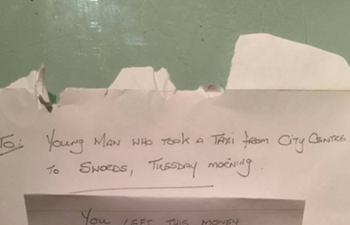 To: Young Man who took a Taxi from City Centre
to Swords, Tuesday morning.
You left this money